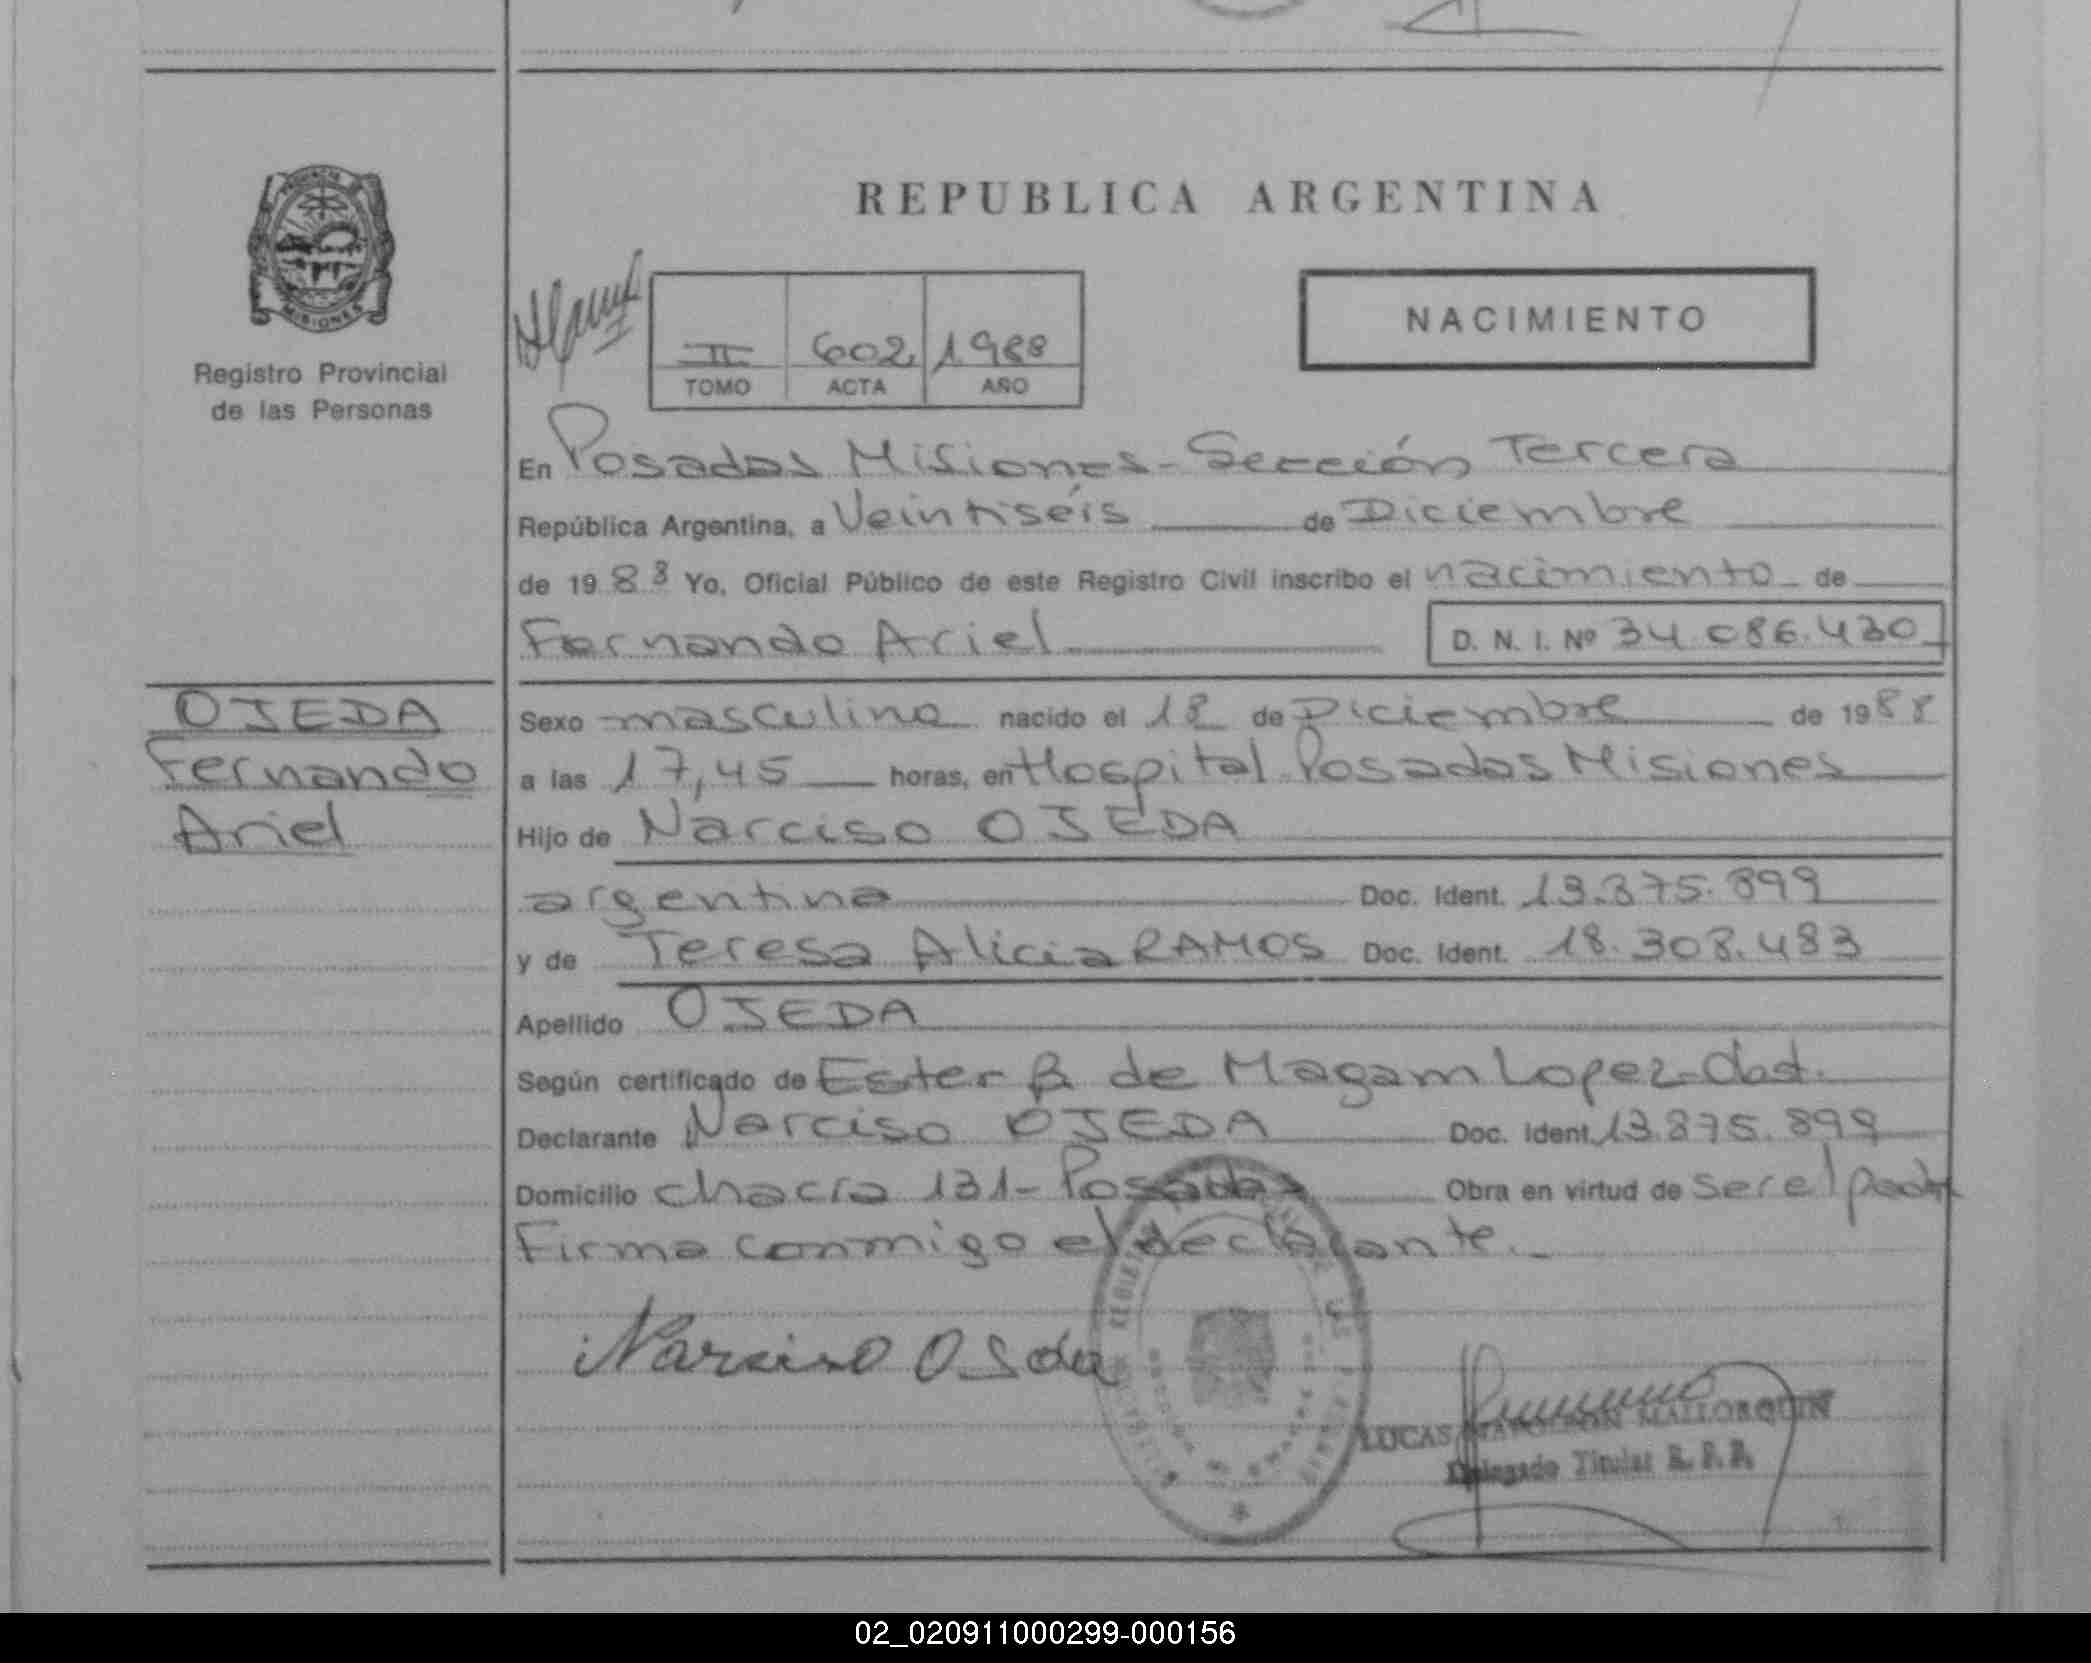 PROVINCIA DE
MISIONES
Registro Provincial
de las Personas
REPUBLICA ARGENTINA
NACIMIENTO
II 602 1988
TOMO ACTA AÑO
En Posadas Misiones - Sección Tercera
República Argentina, a Veintiséis de Diciembre
de 1988 Yo, Oficial Público de este Registro Civil inscribo el nacimiento de
Fernando Ariel D. N. I. Nº 34.086.430
OJEDA
Fernando
Ariel
Sexo masculino nacido el 18 de Diciembre de 1988
a las 17,45 horas, en Hospital Posadas Misiones
Hijo de Narciso OJEDA
argentina Doc. Ident. 13.875.899
y de Teresa Alicia RAMOS Doc. Ident. 18.308.483
Apellido OJEDA
Según certificado de Ester B. de Magam Lopez-Obst.
Declarante Narciso OJEDA Doc. Ident. 13.875.899
Domicilio chacra 131- Posadas Obra en virtud de ser el padre
Firma conmigo el declarante.
Narciso OJeda
LUCAS MALLORQUIN
Delegado Titular R. P. P.
02_020911000299-000156